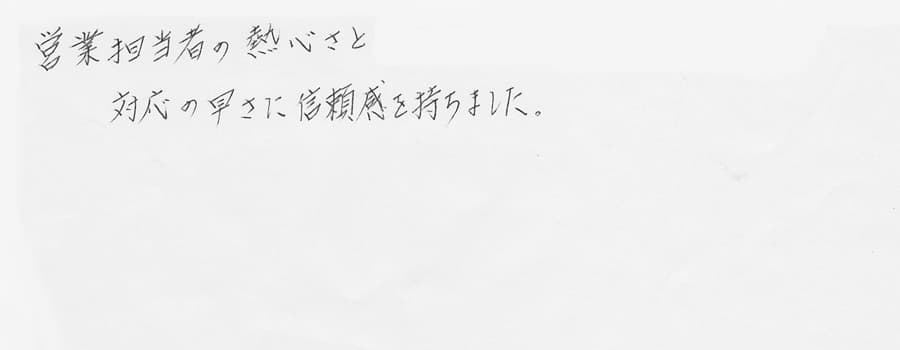 営業担当者の熱心さと
対応の早さに信頼感を持ちました。